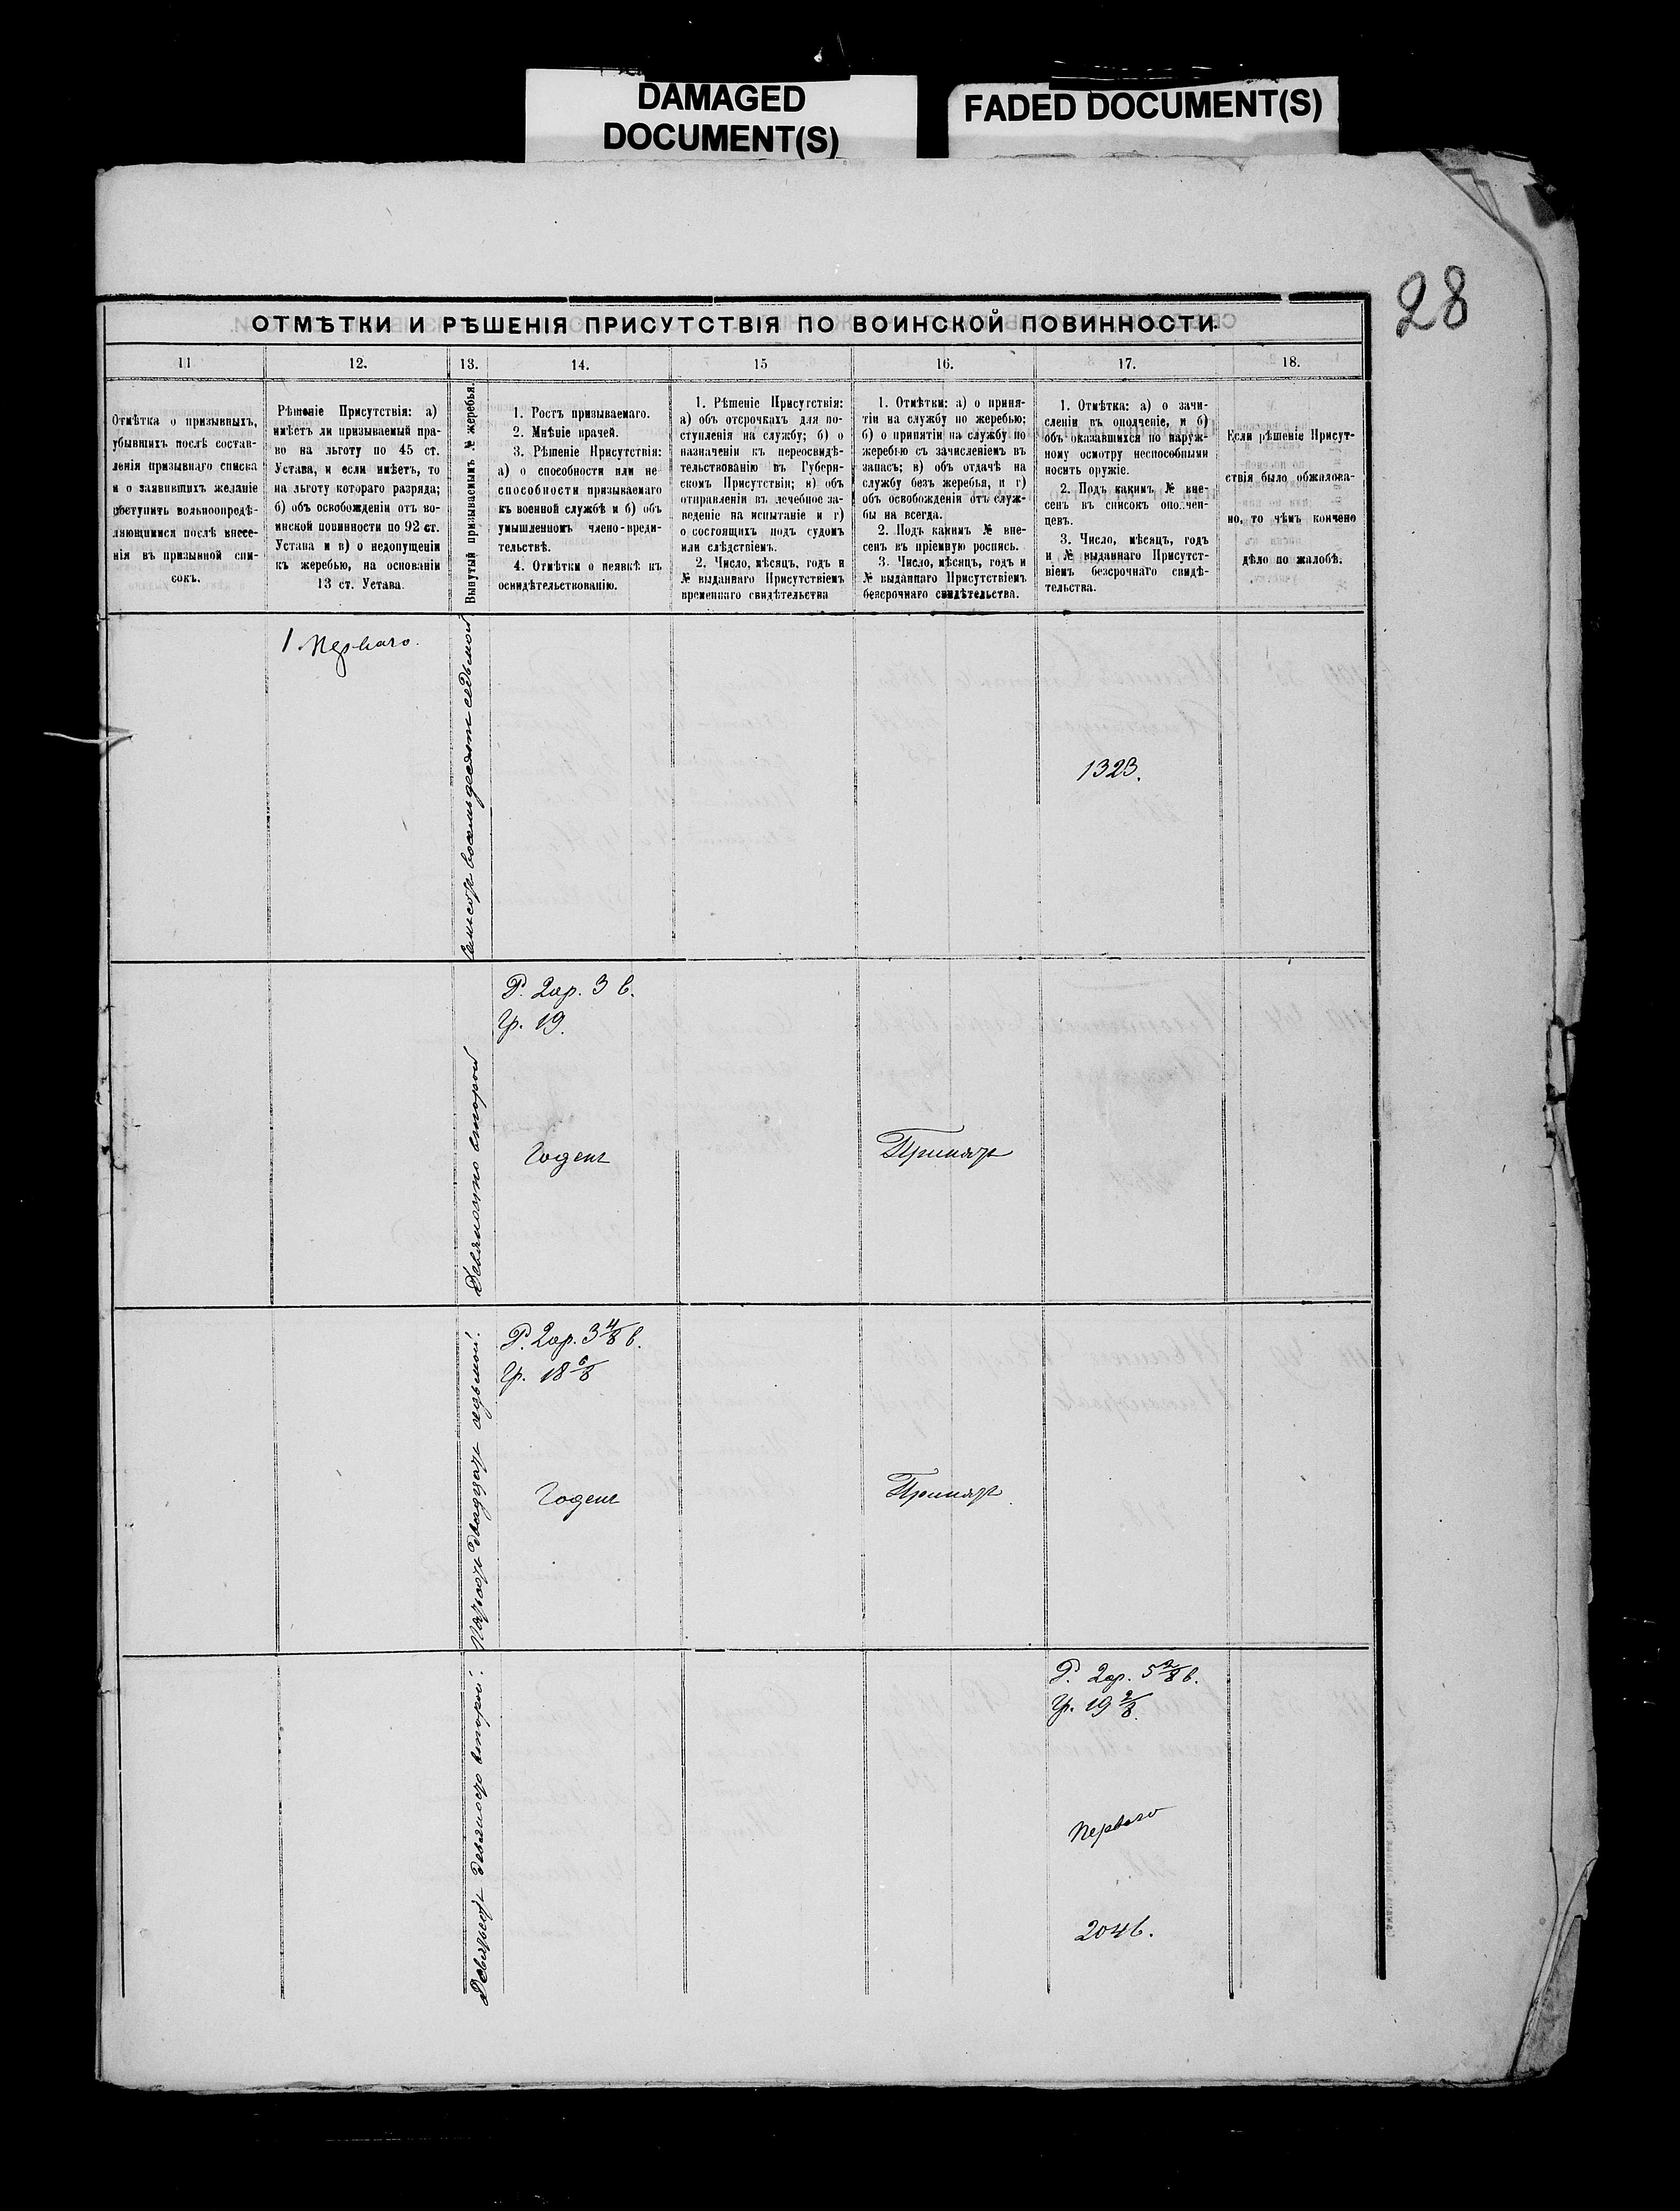 DAMAGED
DOCUMENT(S)
FADED DOCUMENT(S)
28
ОТМѢТКИ И РѢШЕНІЯ ПРИСУТСТВІЯ ПО ВОИНСКОЙ ПОВИННОСТИ.
11
12.
13.
14.
15
16.
17.
18.
Отмѣтка о призывныхъ,
убывшихъ послѣ состав-
ленія призывнаго списка
и о заявившихъ желаніе
поступить вольноопредѣ-
ляющимися послѣ внесе-
нія въ призывной спи-
сокъ.
Рѣшеніе Присутствія: а)
имѣетъ ли призываемый пра-
во на льготу по 45 ст.
Устава, и если имѣетъ, то
на льготу котораго разряда;
б) объ освобожденіи отъ во-
инской повинности по 92 ст.
Устава и в) о недопущеніи
къ жеребью, на основаніи
13 ст. Устава.
Вынутый призываемымъ № жеребья.
1. Ростъ призываемаго.
2. Мнѣніе врачей.
3. Рѣшеніе Присутствія:
а) о способности или не
способности призываемаго
къ военной службѣ и б) объ
умышленномъ члено-вреди-
тельствѣ.
4. Отмѣтки о неявкѣ къ
освидѣтельствованію.
1. Рѣшеніе Присутствія:
а) объ отсрочкахъ для по-
ступленія на службу; б) о
назначеніи къ переосвидѣ-
тельствованію въ Губерн-
скомъ Присутствіи; в) объ
отправленіи въ лечебное за-
веденіе на испытаніе и г)
о состоящихъ подъ судомъ
или слѣдствіемъ.
2. Число, мѣсяцъ, годъ и
№ выданнаго Присутствіемъ
временнаго свидѣтельства
1. Отмѣтки: а) о приня-
тіи на службу по жеребью;
б) о принятіи на службу по
жеребью съ зачисленіемъ въ
запасъ; в) объ отдачѣ на
службу безъ жеребья, и г)
объ освобожденіи отъ служ-
бы на всегда.
2. Подъ какимъ № вне-
сенъ въ пріемную роспись.
3. Число, мѣсяцъ, годъ и
№ выданнаго Присутствіемъ
безсрочнаго свидѣтельства.
1. Отмѣтка: а) о зачи-
сленіи въ ополченіе, и б)
объ оказавшихся по наруж-
ному осмотру неспособными
носить оружіе.
2. Подъ какимъ № вне-
сенъ въ список ополчен-
цевъ.
3. Число, мѣсяцъ, годъ
и № выданнаго Присутст-
віемъ безсрочнаго свидѣ-
тельства.
Если рѣшеніе Присут-
ствія было обжалова-
но, то чѣмъ кончено
дѣло по жалобѣ.
1. Перваго.
Семьсотъ восемьдесятъ седьмой
1323.
Р. 2 ар. 3 в.
Гр. 19.
Девяносто второй
Годенъ
Принятъ
Р. 2 ар. 3 4/8 в.
Гр. 18 6/8
Пятьсотъ двадцать седьмой.
Годенъ
Принятъ
Девятьсотъ девяносто второй.
Р. 2 ар. 5 2/8 в.
Гр. 19 2/8.
Перваго
2046.